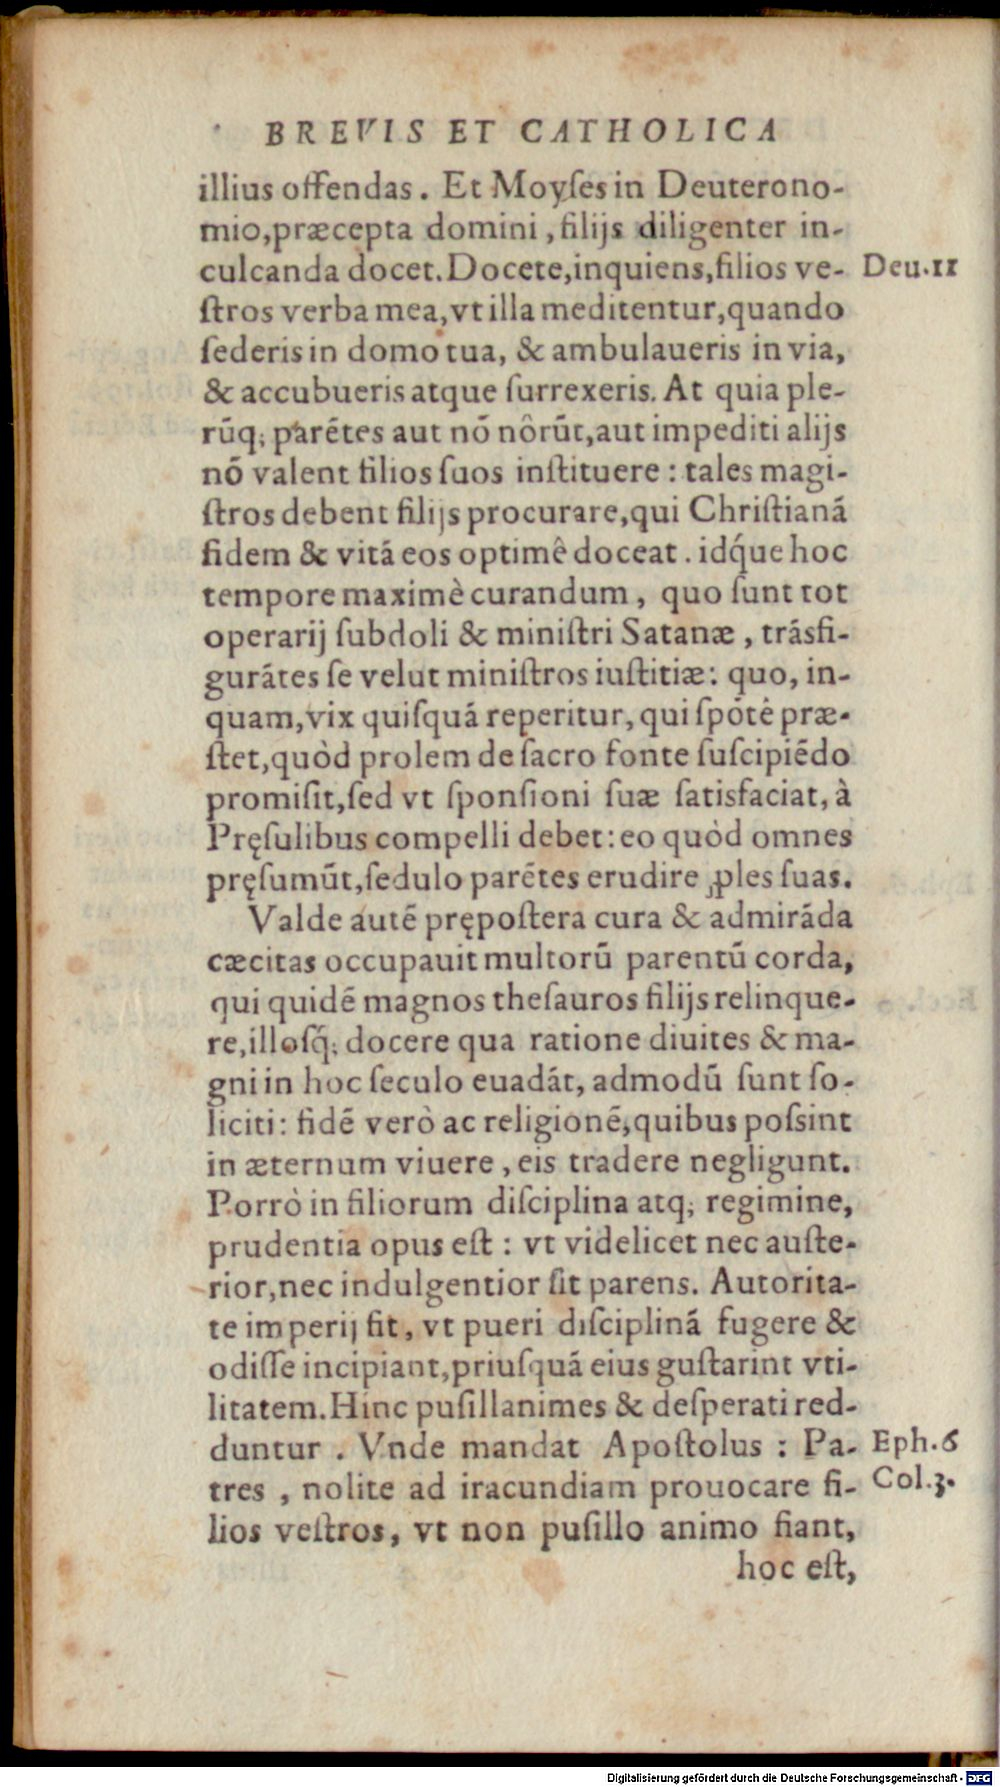 BREVIS ET CATHOLICA
illius offendas. Et Moyſes in Deuterono-
mio, præcepta domini, filijs diligenter in-
culcanda docet. Docete, inquiens, filios ve- Deu. 11
ſtros verba mea, vt illa meditentur, quando
ſederis in domo tua, & ambulaueris in via,
& accubueris atque ſurrexeris. At quia ple-
rūq; parētes aut nō nôrūt, aut impediti alijs
nō valent filios ſuos inſtituere: tales magi-
ſtros debent filijs procurare, qui Chriſtianā
fidem & vitā eos optimê doceāt. idq́ue hoc
tempore maximè curandum, quo ſunt tot
operarij ſubdoli & miniſtri Satanæ, trāsfi-
gurātes ſe velut miniſtros iuſtitiæ: quo, in-
quam, vix quiſquā reperitur, qui ſpōtè præ-
ſtet, quòd prolem de ſacro fonte ſuſcipiēdo
promiſit, ſed vt ſponſioni ſuæ ſatisfaciat, à
Pręſulibus compelli debet: eo quòd omnes
pręſumūt, ſedulo parētes erudire ꝓles ſuas.
Valde autē prępoſtera cura & admirāda
cæcitas occupauit multorū parentū corda,
qui quidē magnos theſauros filijs relinque-
re, illoſq́; docere qua ratione diuites & ma-
gni in hoc ſeculo euadāt, admodū ſunt ſo-
liciti: fidē verò ac religionē, quibus poſsint
in æternum viuere, eis tradere negligunt.
Porrò in filiorum diſciplina atq; regimine,
prudentia opus eſt: vt videlicet nec auſte-
rior, nec indulgentior ſit parens. Autorita-
te imperij fit, vt pueri diſciplinā fugere &
odiſſe incipiant, priuſquā eius guſtarint vti-
litatem. Hinc puſillanimes & deſperati red-
duntur. Vnde mandat Apoſtolus: Pa- Eph. 6
tres, nolite ad iracundiam prouocare fi- Col. 3.
lios veſtros, vt non puſillo animo fiant,
hoc eſt,
Digitalisierung gefördert durch die Deutsche Forschungsgemeinschaft - DFG